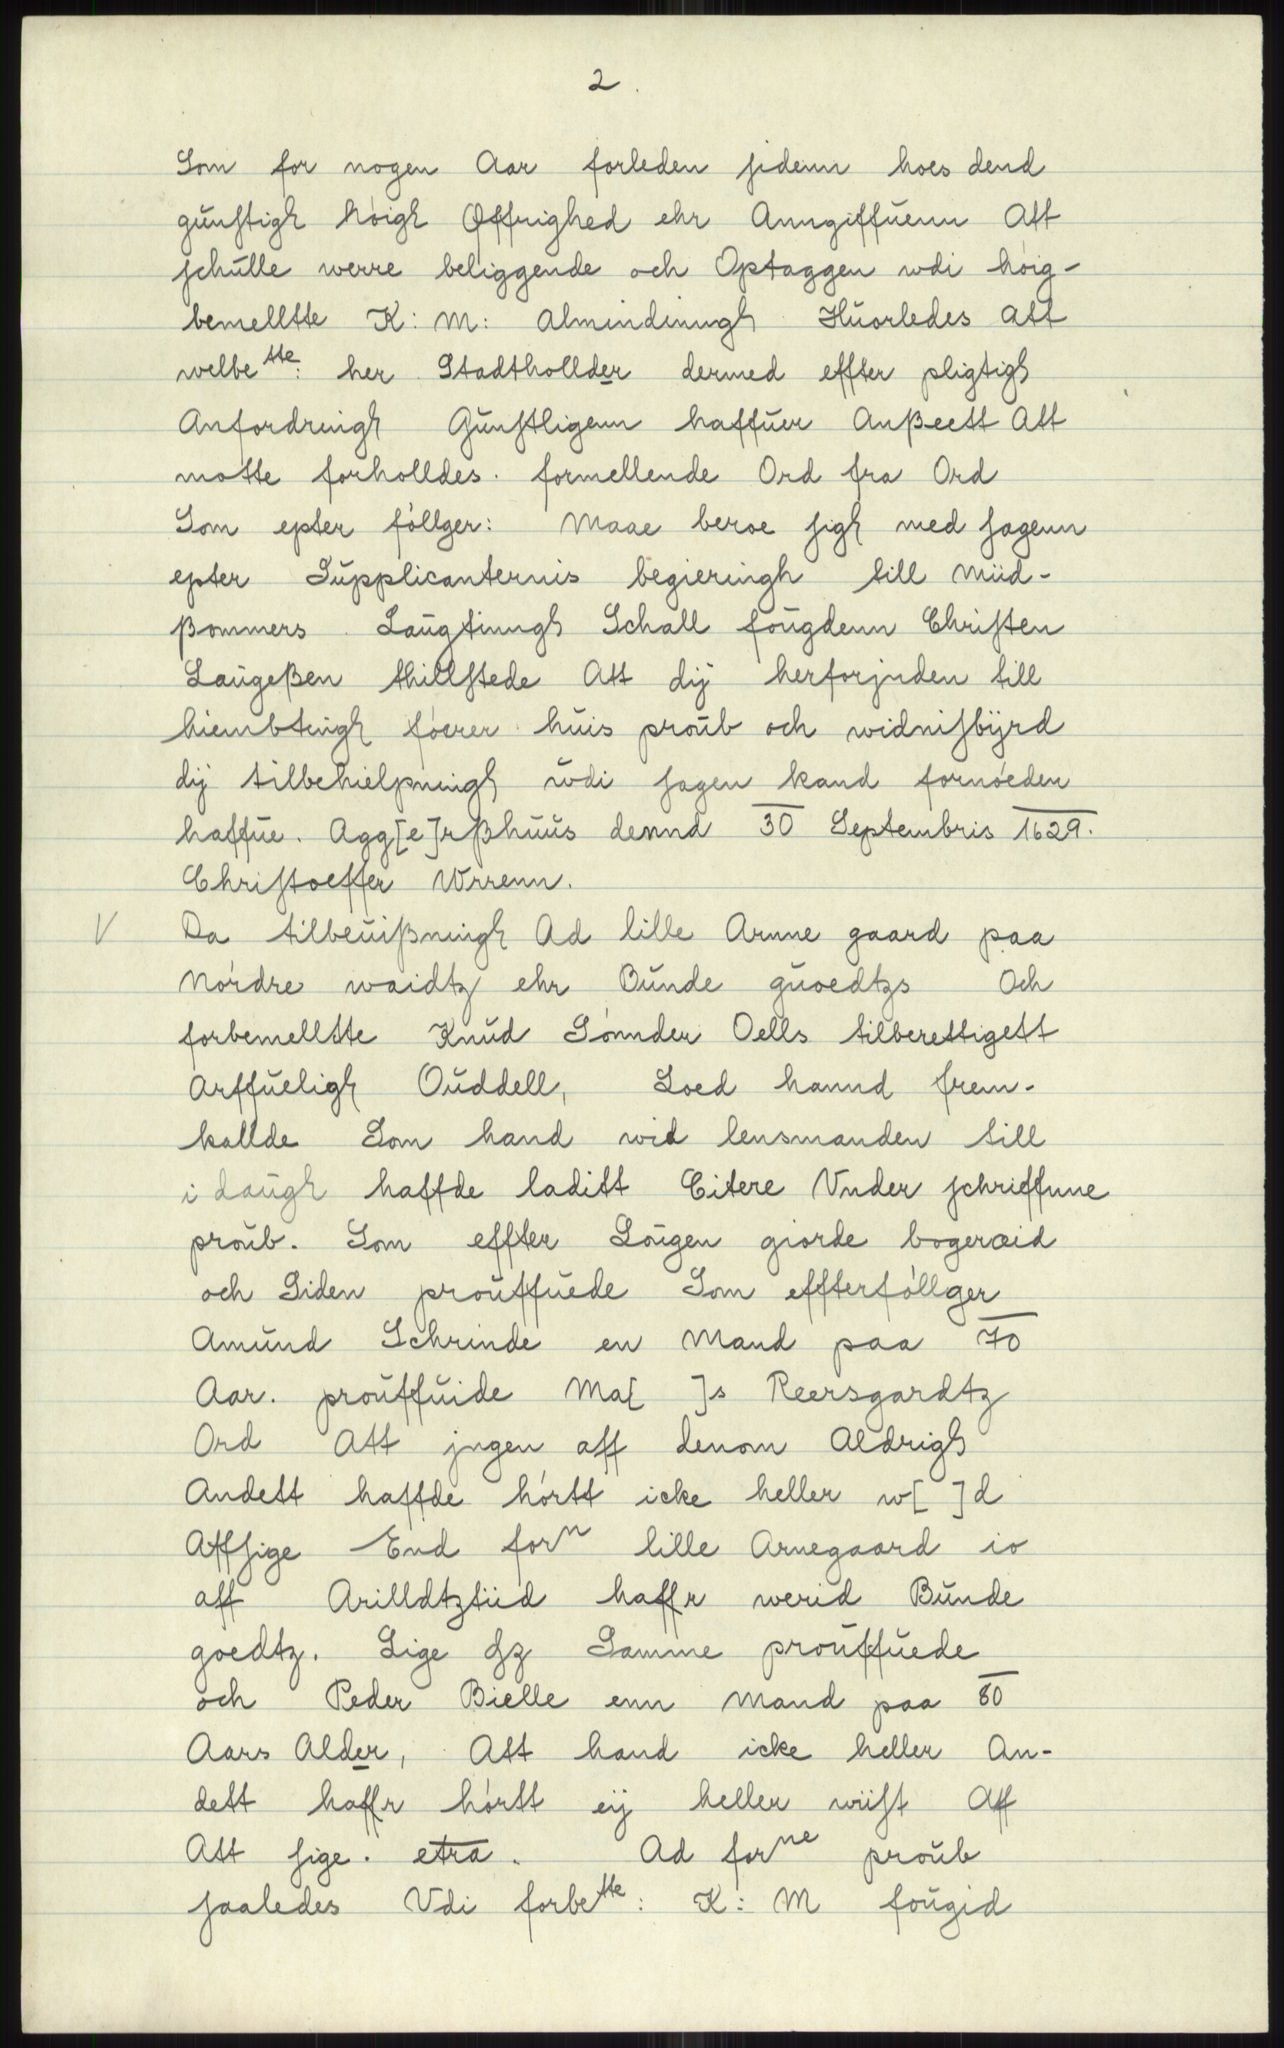 2.
Som for nogen Aar forleden sidenn hoes dend
gunstigh höigh Øffrighed ehr Anngiffuenn Att
schulle werre beliggende och Optaggen wdi höig-
bemelltte K: M: Almindinngh Huorledes att
welbe tte: her Stadthollder dermed effter pligtigh
Anfordringh Gunstligenn haffuer Anßeett Att
motte forholldes. formellende Ord fra Ord
Som epter föllger: Maae beroe sigh med sagenn
epter Supplicanternis begieringh till Miid-
ßommers Laugtinngh Schall fougdenn Christen
Laugeßen thillstede Att dij herforjnden till
hiembtingh föerer huis proub och widnisbyrd
dij tilbehielpningh udi sagen kand fornöeden
haffue. Agg[e]rßhuus dennd 30 Septembris 1629.
Christoeffer Wrrenn.
V Da tilbeuißningh Ad lille Arnne gaard paa
Nördre waidtz ehr Bunde guoedtzs Och
forbemelltte Knud Sönnder Oells tilberettigett
Arffueligh Ouddell, Loed hannd frem-
kallde Som hand wid lensmanden till
i daugh haffde laditt Citere Vnder schrieffnne
proub. Som effter Lougen giorde bogeræid
och Siden prouffuede Som effterföllger
Amund Schrinde en Mand paa 70
Aar. prouffuide Ma[ ]s Reersgardtz
Ord Att jngen aff denom Aldrigh
Andett haffde hörtt icke heller w[ ]d
Affsige End for n lille Arnegaard io
aff Arilldtztiid haffr werid Bunde
goedtz. Lige sz Samme prouffuede
och Peder Bielle enn Mand paa 80
Aars Alder, Att hand icke heller An-
dett haffr hörtt eij heller wiist Aff
Att sige. etra. Ad for ne proub
saaledes Vdi forbe tte: K: M fougid